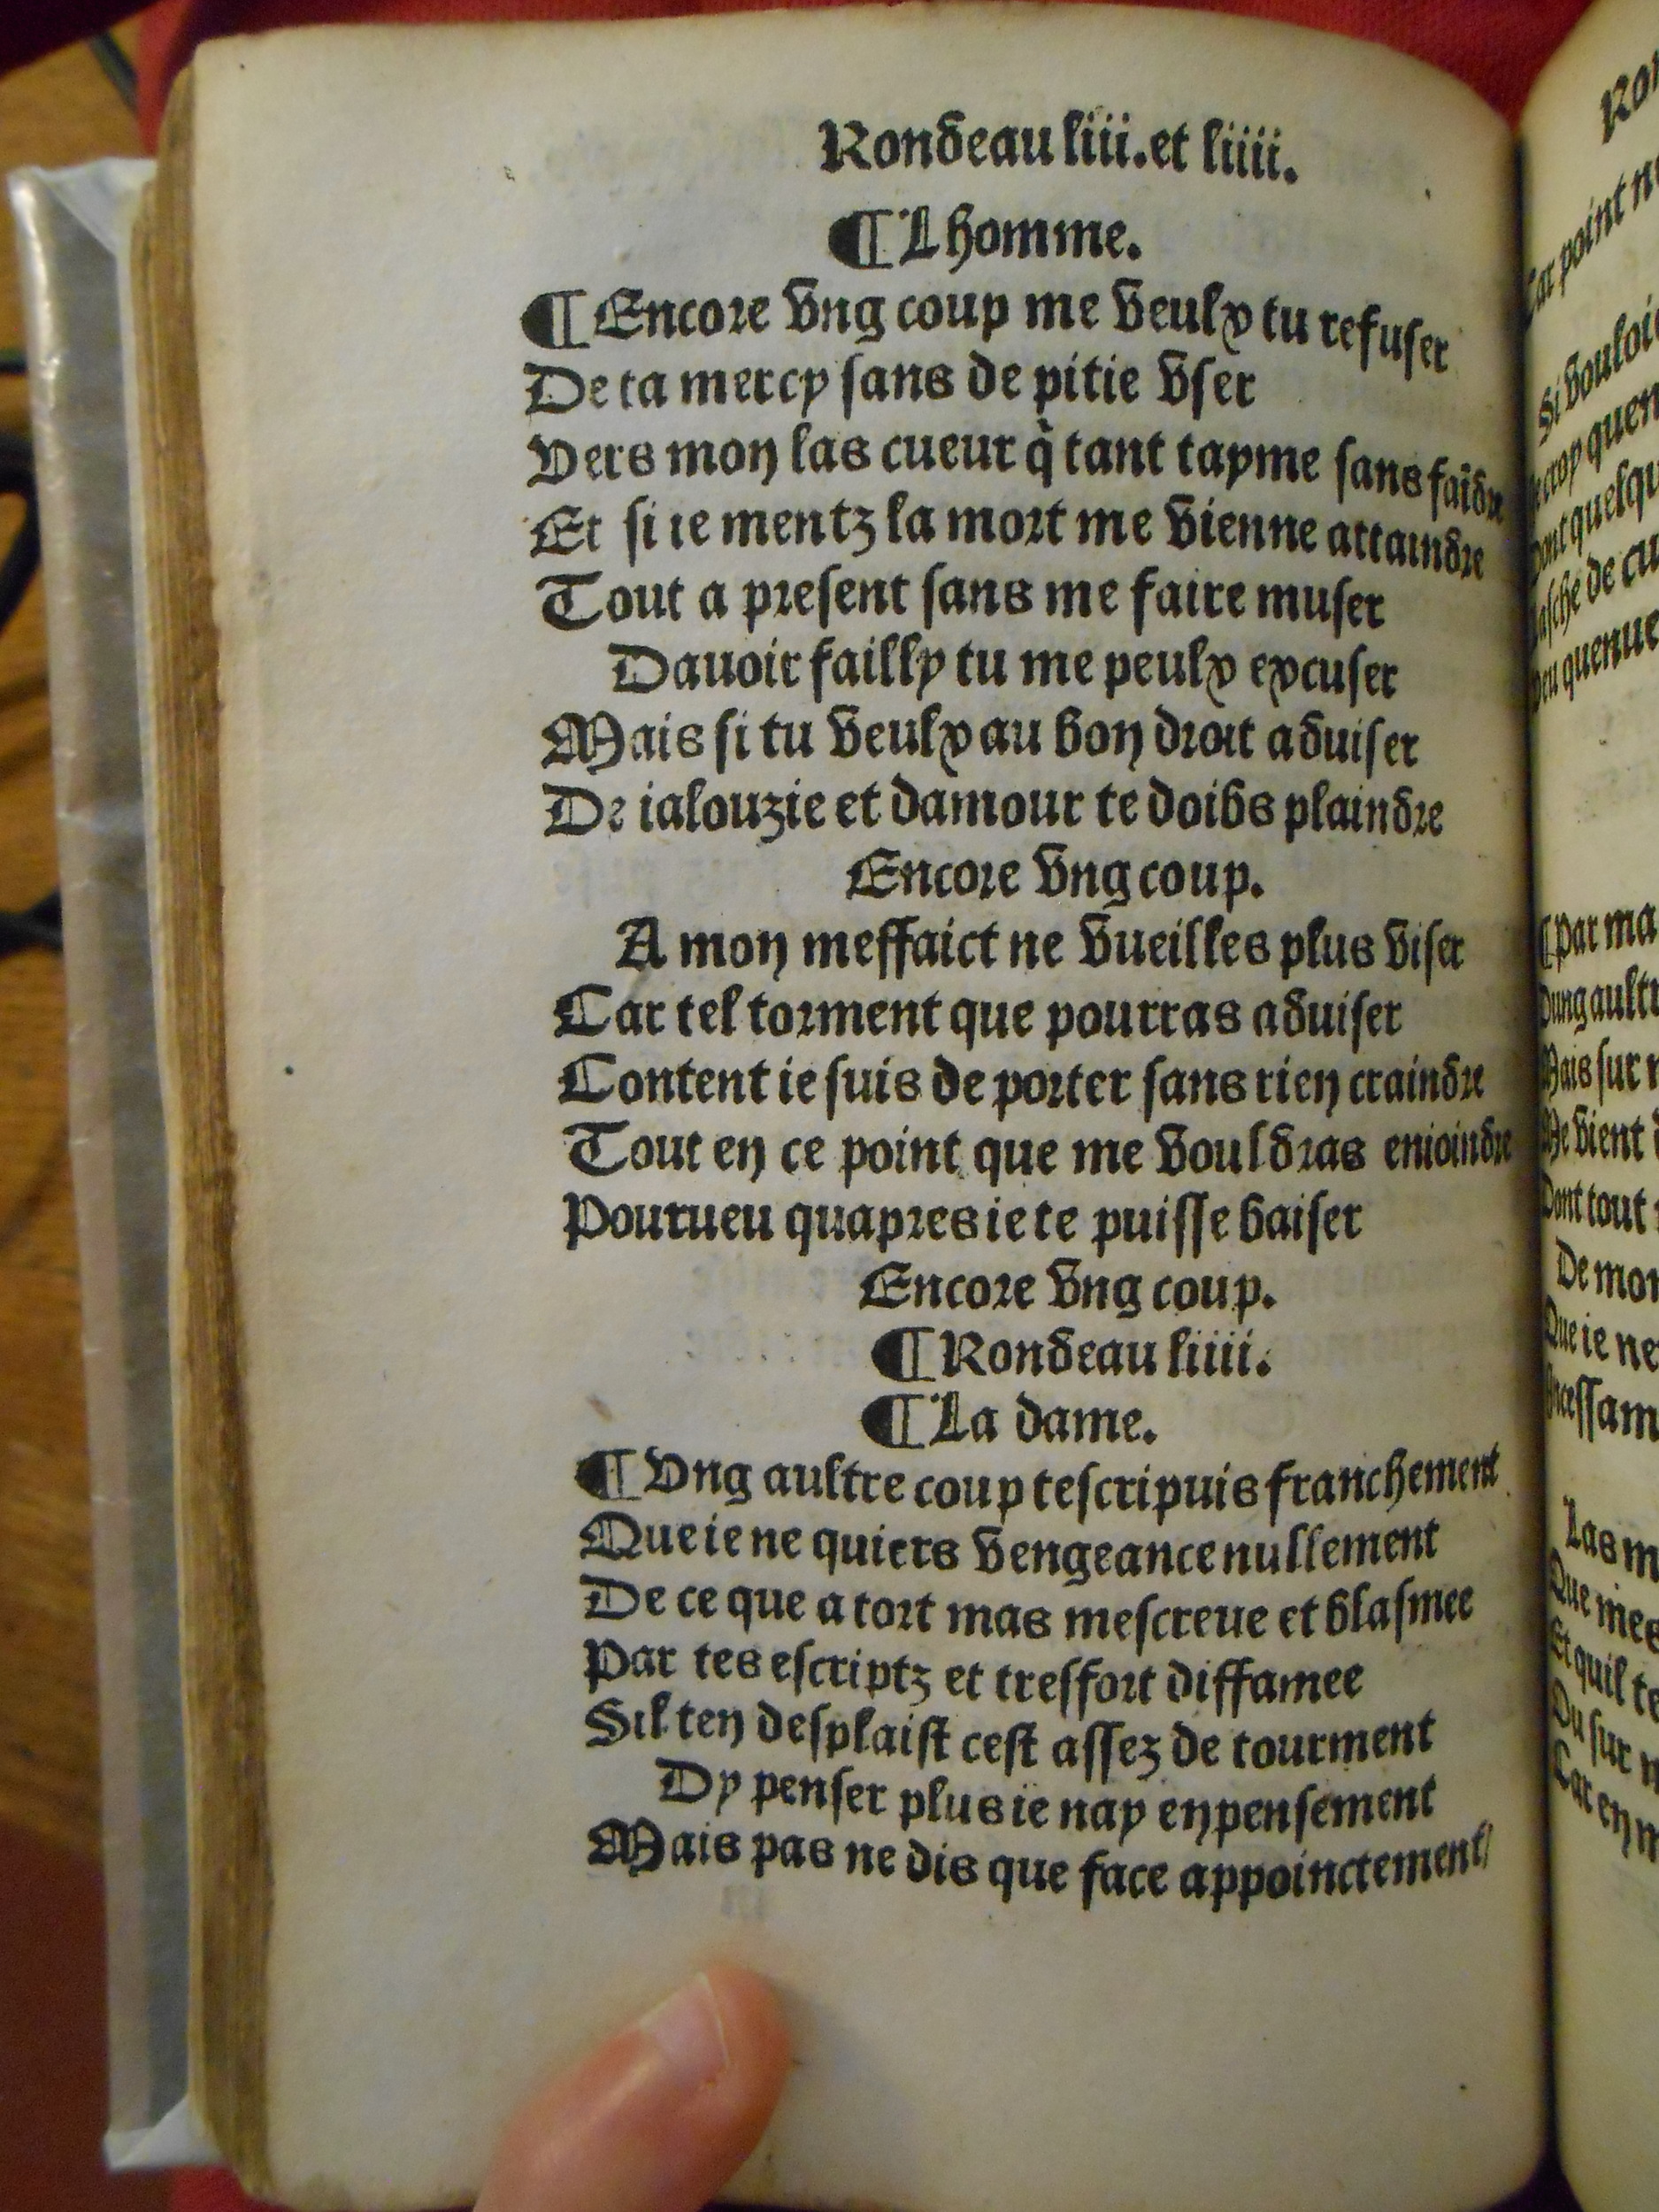 Rondeau liii. et liiii.
¶ Lhomme.
¶ Encore vng coup me veulx tu refuser
De ta mercy sans de pitie vser
Vers mon las cueur q̃ tant tayme sans faīdre
Et si ie mentz la mort me vienne attaindre
Tout a present sans me faire muser
Dauoir failly tu me peulx excuser
Mais si tu veulx au bon droit aduiser
De ialouzie et damour te doibs plaindre
Encore vng coup.
A mon meffaict ne vueilles plus viser
Car tel torment que pourras aduiser
Content ie suis de porter sans rien craindre
Tout en ce point que me vouldras enioindre
Pourueu quapres ie te puisse baiser
Encore vng coup.
¶ Rondeau liiii.
¶ La dame.
¶ Vng aultre coup tescripuis franchement
Que ie ne quiers vengeance nullement
De ce que a tort mas mescreue et blasmee
Par tes escriptz et tresfort diffamee
Sil ten desplaist cest assez de tourment
Dy penser plus ie nay en pensement
Mais pas ne dis que face appoinctement/
Car point
Si
quen
Dont quelqu
de
Veu quenue
¶ Par ma
Dung aultr
Mais sur
Me vient
Dont tout
De mon
Que ie ne
Las m
Que mes
Et quil te
Ou sur
Car en